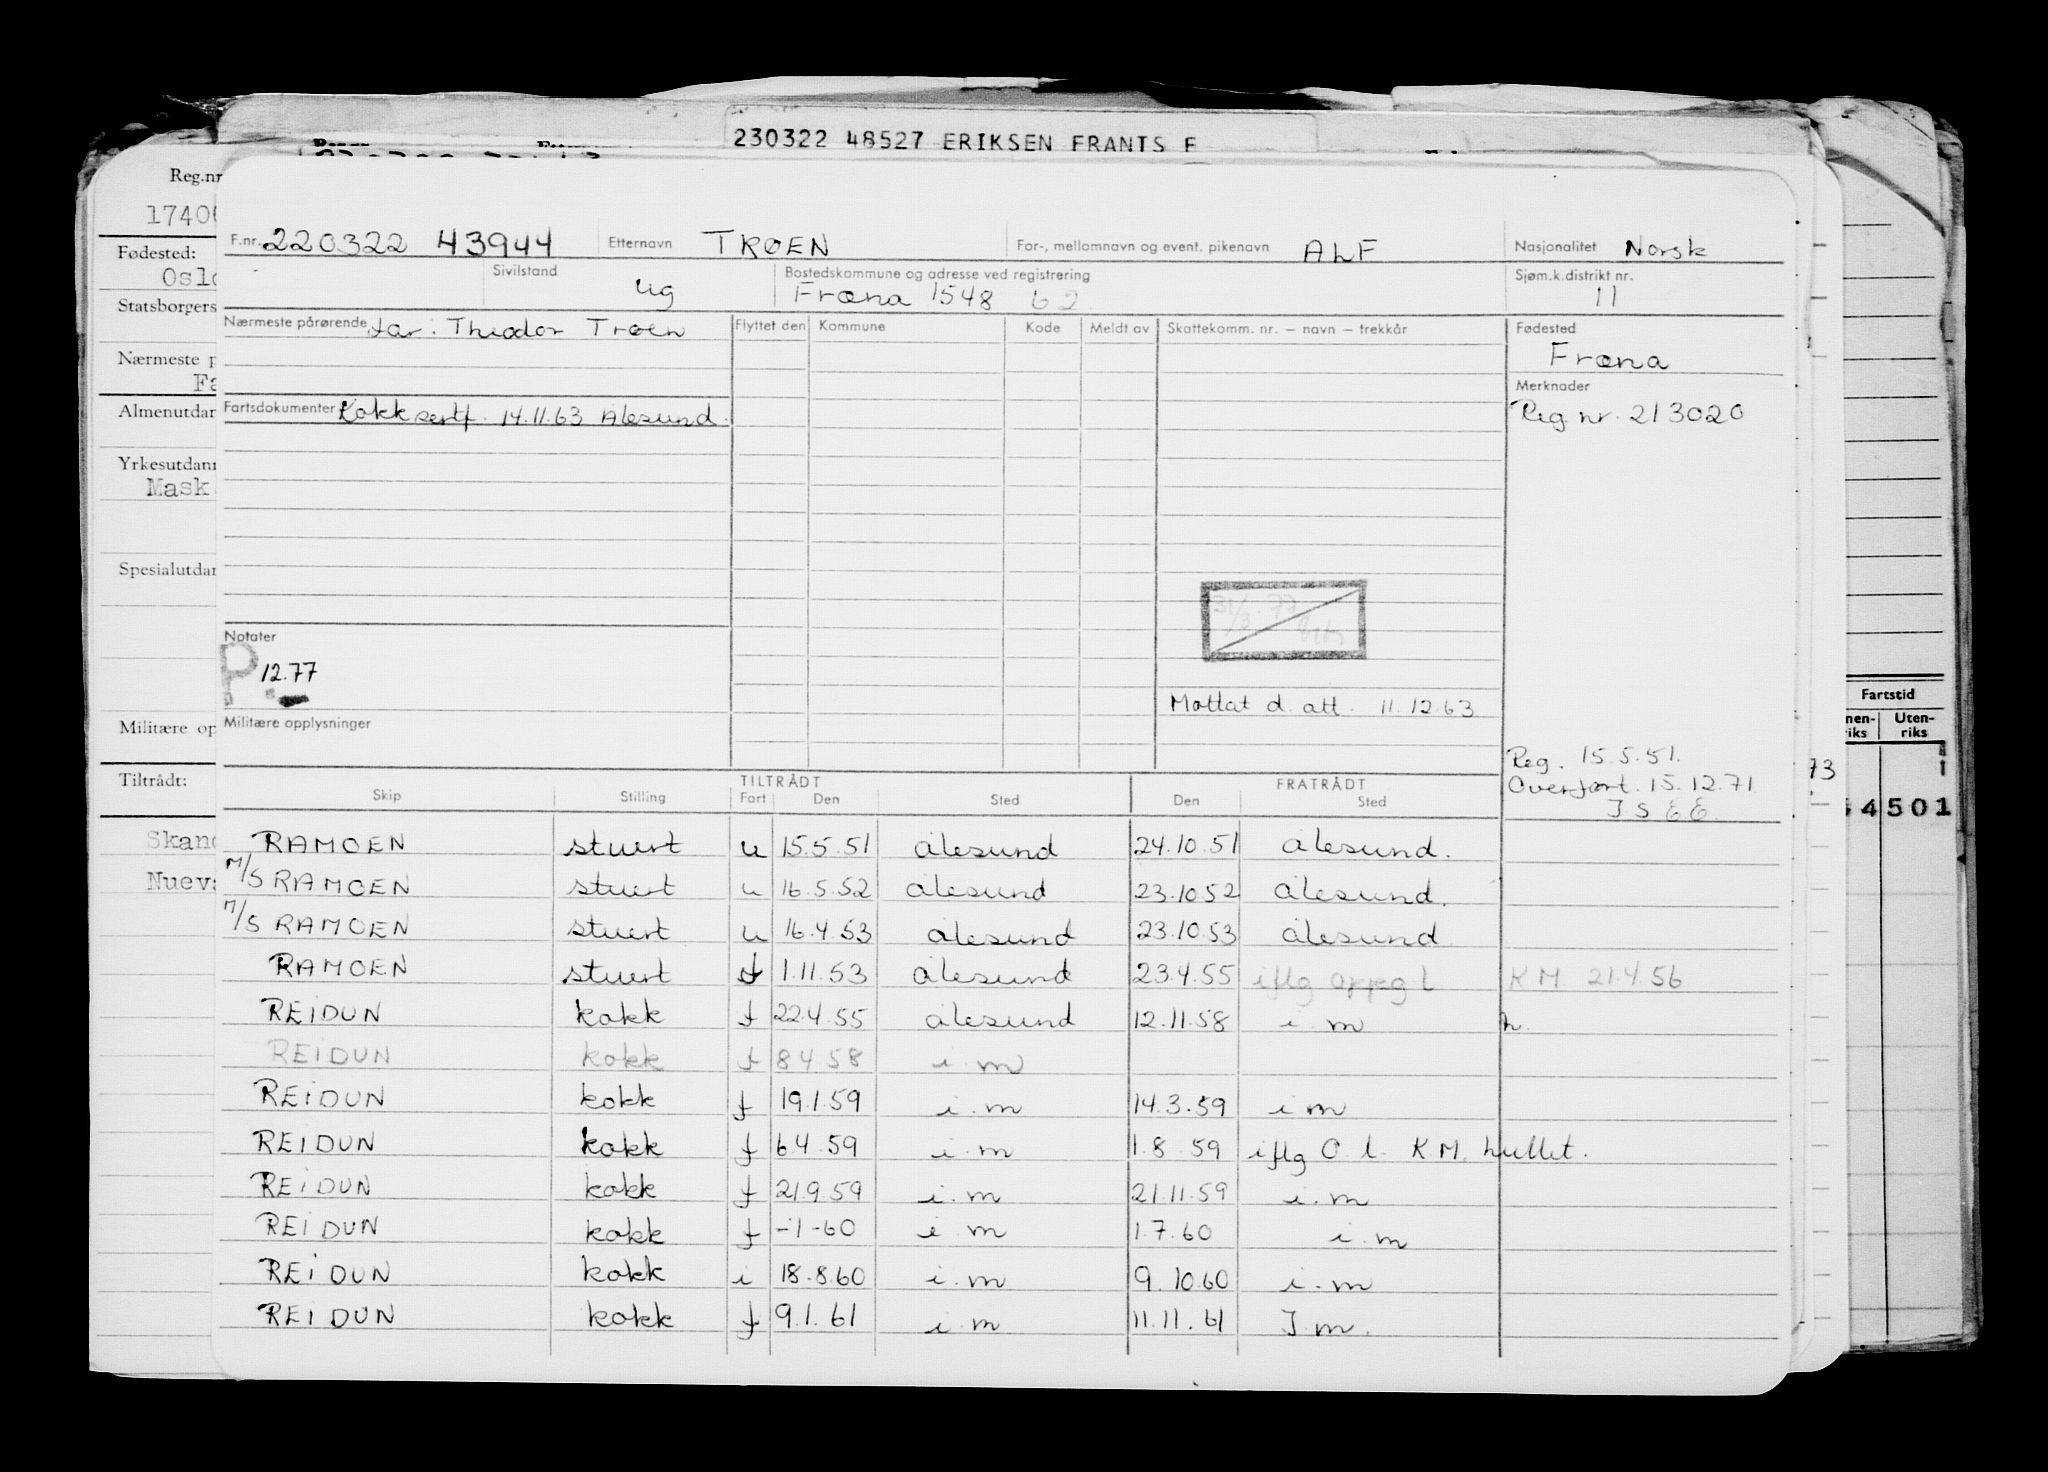 230322 48527 ERIKSEN FRANTS E
Reg.nr
Fødested:
Oslo
Statsborgers
Nærmeste p
Fa
Almenutdan
Yrkesutdann
Mask
Spesialutdan
Militære op
Tiltrådt:
Skand
Nueva
F.nr. 220322 43944 Etternavn TRØEN For-, mellomnavn og event. pikenavn ALF Nasjonalitet Norsk
Sivilstand ug Bostedskommune og adresse ved registrering Fræna 1548 62 Sjøm.k.distrikt nr. 11
Nærmeste pårørende far: Theodor Trøen Flyttet den Kommune Kode Meldt av Skattekomm. nr. – navn – trekkår Fødested
Fræna
Merknader
Fartsdokumenter Kokksertf. 14.11.63 Ålesund. Reg. nr. 213020
31/3.77
Notater
P 12.77
Mottat d. att. 11.12.63
Militære opplysninger
Reg. 15.5.51.
Overført. 15.12.71
TILTRÅDT FRATRÅDT
Skip Stilling Fart Den Sted Den Sted
RAMOEN stuert u 15.5.51 Ålesund 24.10.51 Ålesund.
M/S RAMOEN stuert u 16.5.52 Ålesund 23.10.52 Ålesund.
M/S RAMOEN stuert u 16.4.53 Ålesund 23.10.53 Ålesund
RAMOEN stuert f 1.11.53 Ålesund 23.4.55 iflg oppg l KM. 21.4.56
REIDUN kokk f 22.4.55 Ålesund 12.11.58 i. m h.
REIDUN kokk f 8 4 58 i. m
REIDUN kokk f 19.1.59 i. m 14.3.59 i m
REIDUN kokk f 6 4. 59 i. m 1.8.59 iflg O. l. K.M. hullet.
REIDUN kokk f 21.9.59 i. m 21.11.59 i. m
REIDUN kokk f -1-60 i m 1.7.60 i. m
REIDUN kokk i 18.8.60 i. m 9.10.60 i. m
REIDUN kokk f 9.1.61 i. m 11.11.61 I m.
Fartstid
Uten-
riks
73
4 501